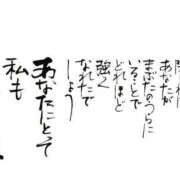 あなたが
まぶたのうらに
いることで
どれほど
強く
なれたで
しょう
あなたにとって
私も